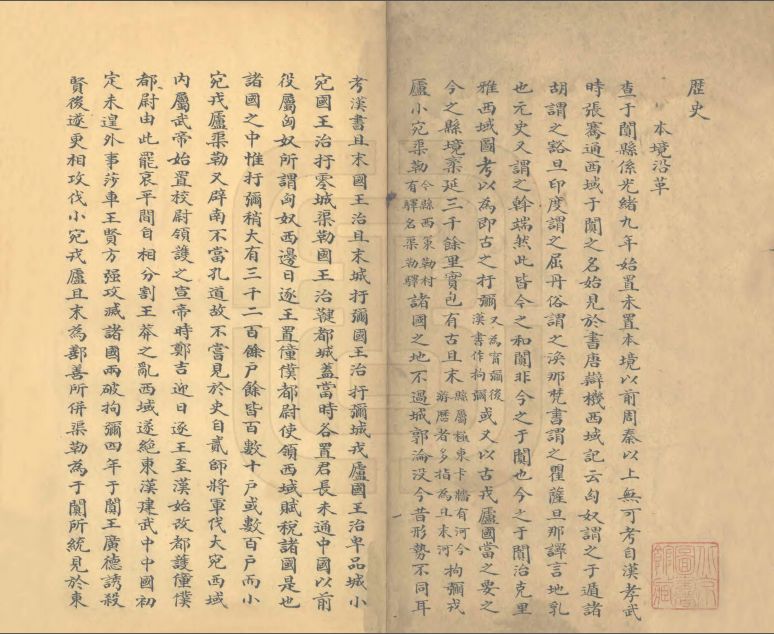 歷史
本境沿革
查于闐縣係光緒九年始置未置本境以前周秦以上無可考自漢孝武
時張騫通西域于闐之名始見於書唐辯機西域記云匈奴謂之于遁諸
胡謂之豁旦印度謂之屈丹俗謂之渙那梵書謂之瞿薩旦那譯言地乳
也元史又謂之斡端然此皆今之和闐非今之于闐也今之于闐治克里
雅西域圖考以為即古之扜彌又為甯彌後漢書作拘彌或又以古戎盧國當之要之
今之縣境袤延三千餘里實包有古且末縣屬極東卡牆有河今游歷者多指為且末河拘彌戎
盧小宛渠勒今縣西策勒村有驛名渠勒驛諸國之地不過城郭淪没今昔形勢不同耳
考漢書且末國王治且末城扜彌國王治扜彌城戎盧國王治卑品城小
宛國王治扜零城渠勒國王治鞬都城蓋當時各置君長未通中國以前
役屬匈奴所謂匈奴西邊日逐王置僮僕都尉使領西域賦稅諸國是也
諸國之中惟扜彌稍大有三千二百餘户餘皆百數十户或數百户而小
宛戎盧渠勒又辟南不當孔道故不嘗見於史自貳師將軍伐大宛西域
內屬武帝始置校尉領護之宣帝時鄭吉迎日逐王至漢始改都護僮僕
都尉由此罷哀平間自相分割王莽之亂西域遂絕東漢建武中中國初
定未遑外事莎車王賢方强攻滅諸國兩破拘彌四年于闐王廣德誘殺
賢後遂更相攻伐小宛戎盧且末為鄯善所併渠勒為于闐所統見於東